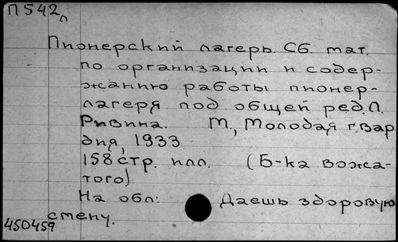 П542л
Пионерский лагерь. Сб. мат.
по организации и содер-
жанию работы пионер-
лагеря под общей ред. Л.
Ривина. М., Молодая гвар
дия, 1933
158 стр. илл. (Б-ка вожа-
того)
На обл: Даешь здоровую
смену.
450459